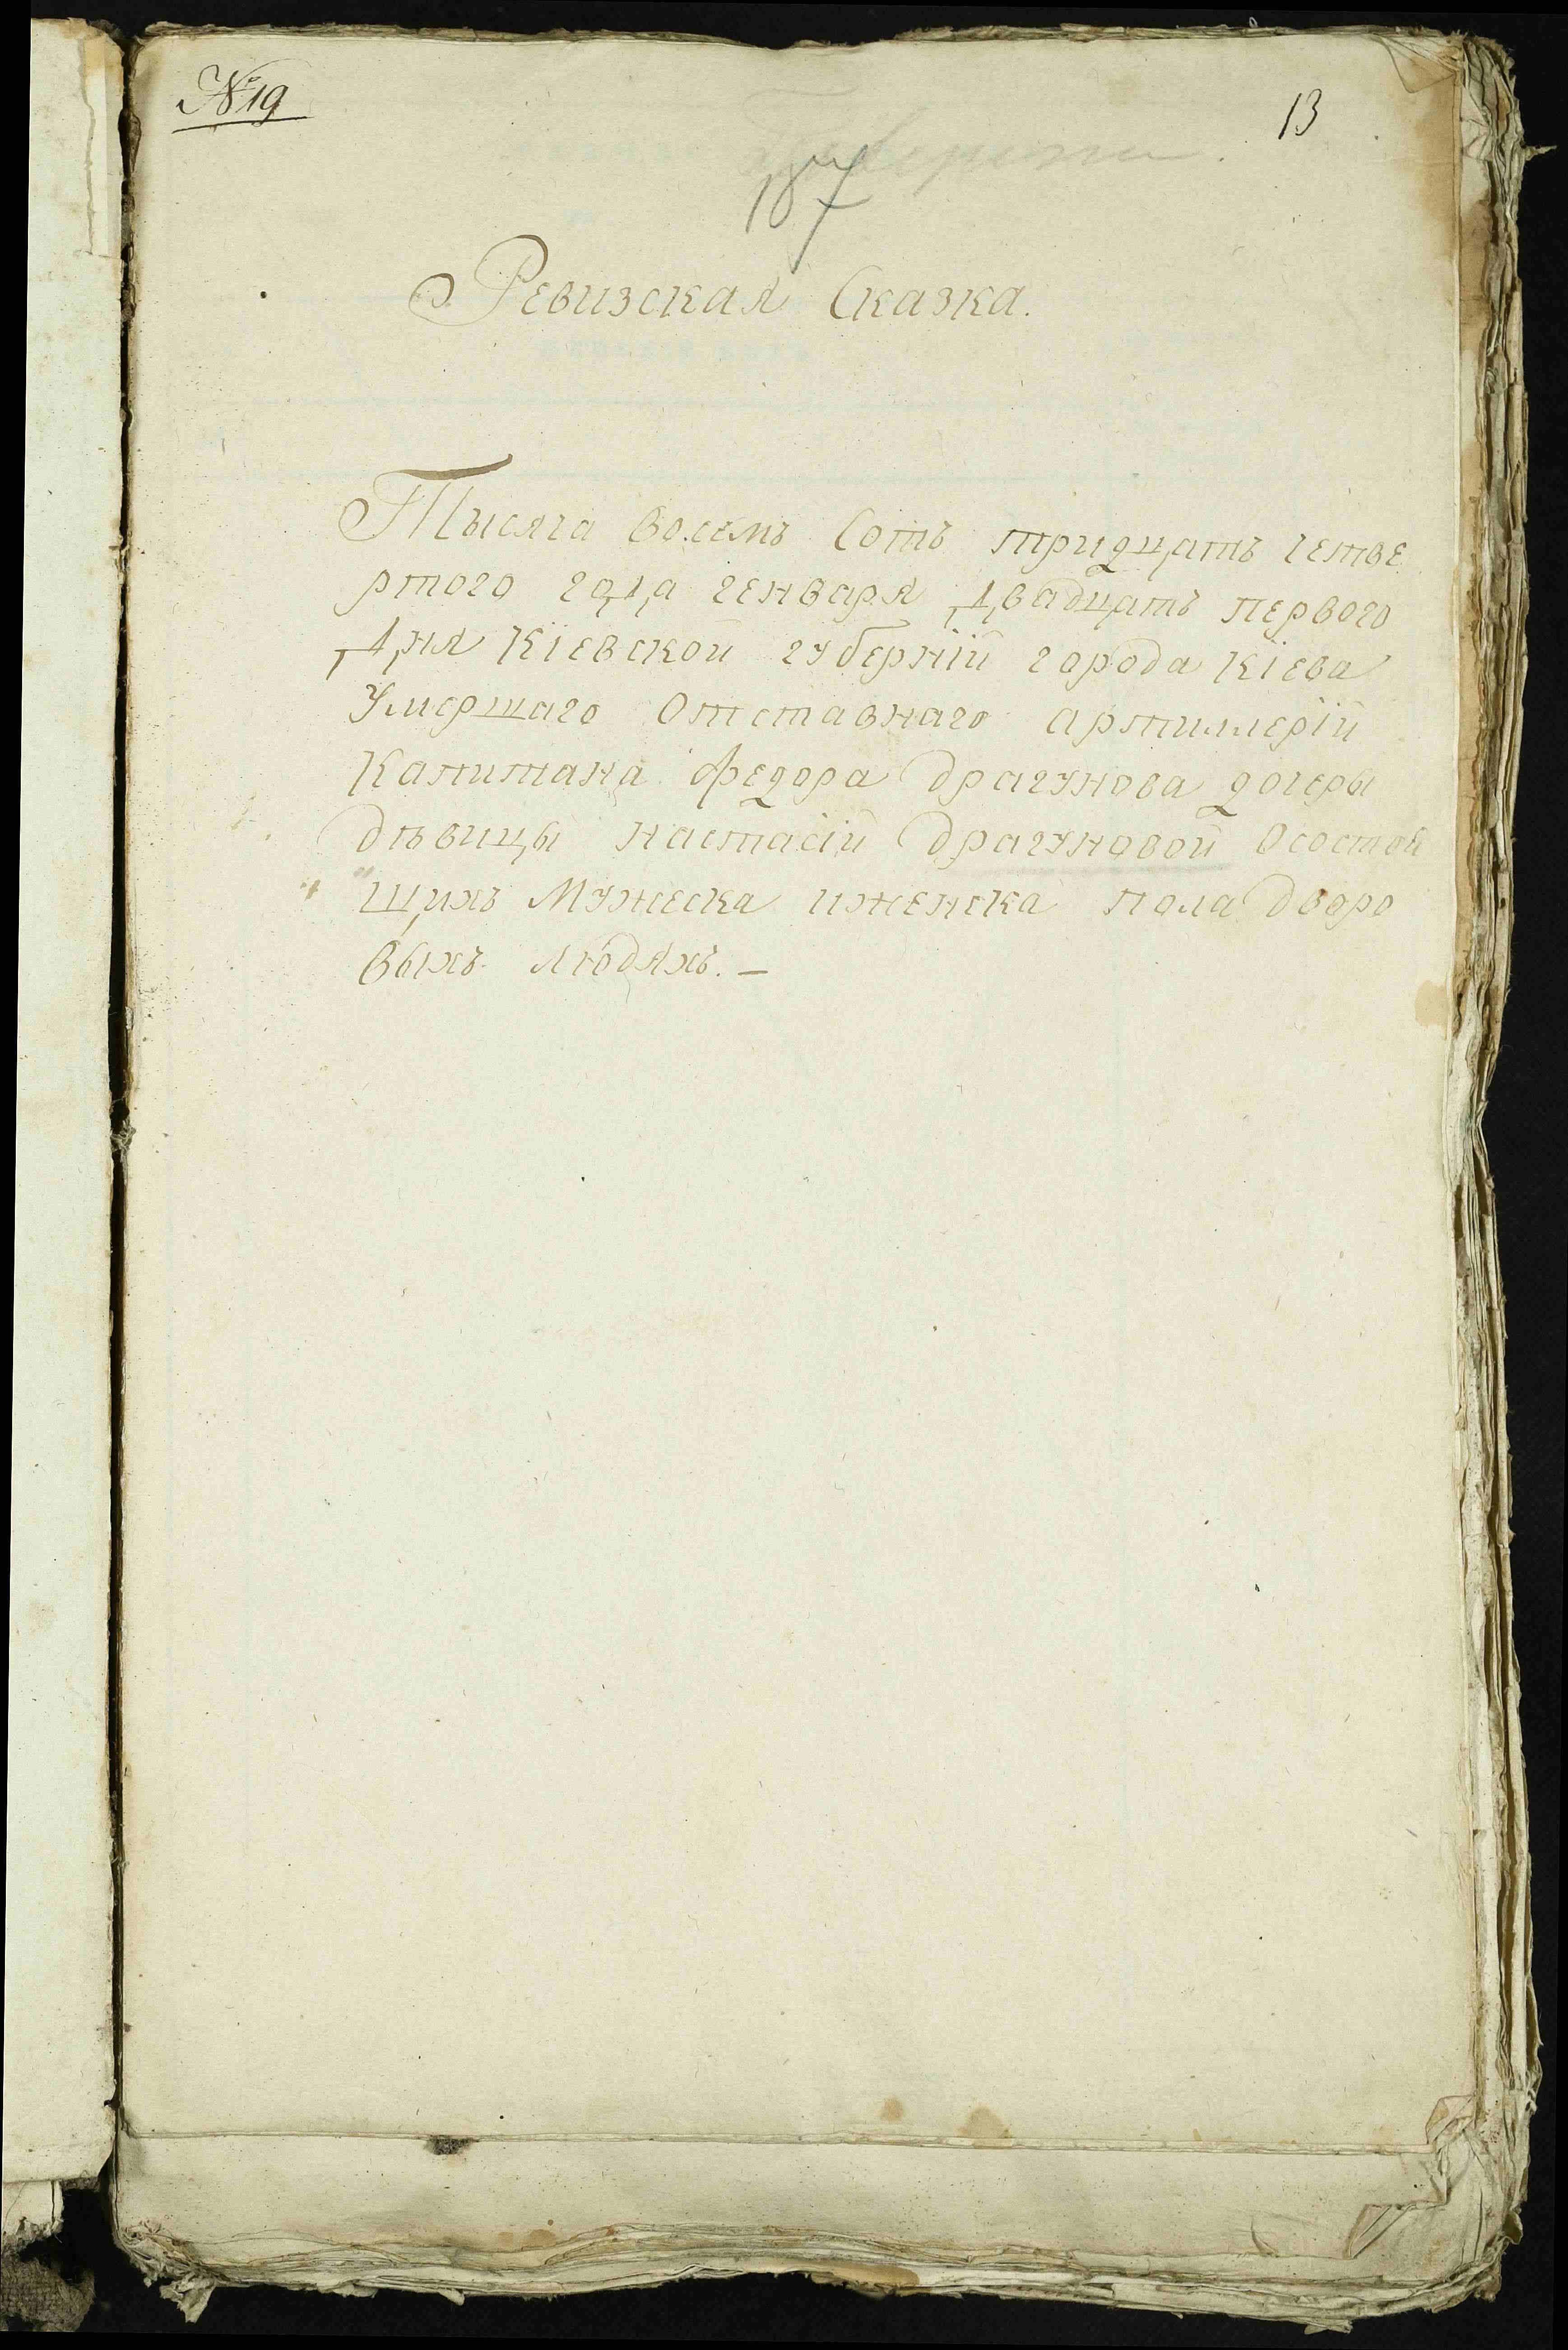 № 19
13
187
Ревизская Сказка.
Тысяча восемъ Сотъ тридцать четве
ртого года генваря двадцать первого
Дня Кіевской губерніи города Кіева
Умершаго Отставнаго артиллеріи
Капитана федора драгунова дочеры
дѣвицы настасіи драгуновой Осостоя
щихъ Мужеска иженска пола дворо
выхъ людяхъ. —